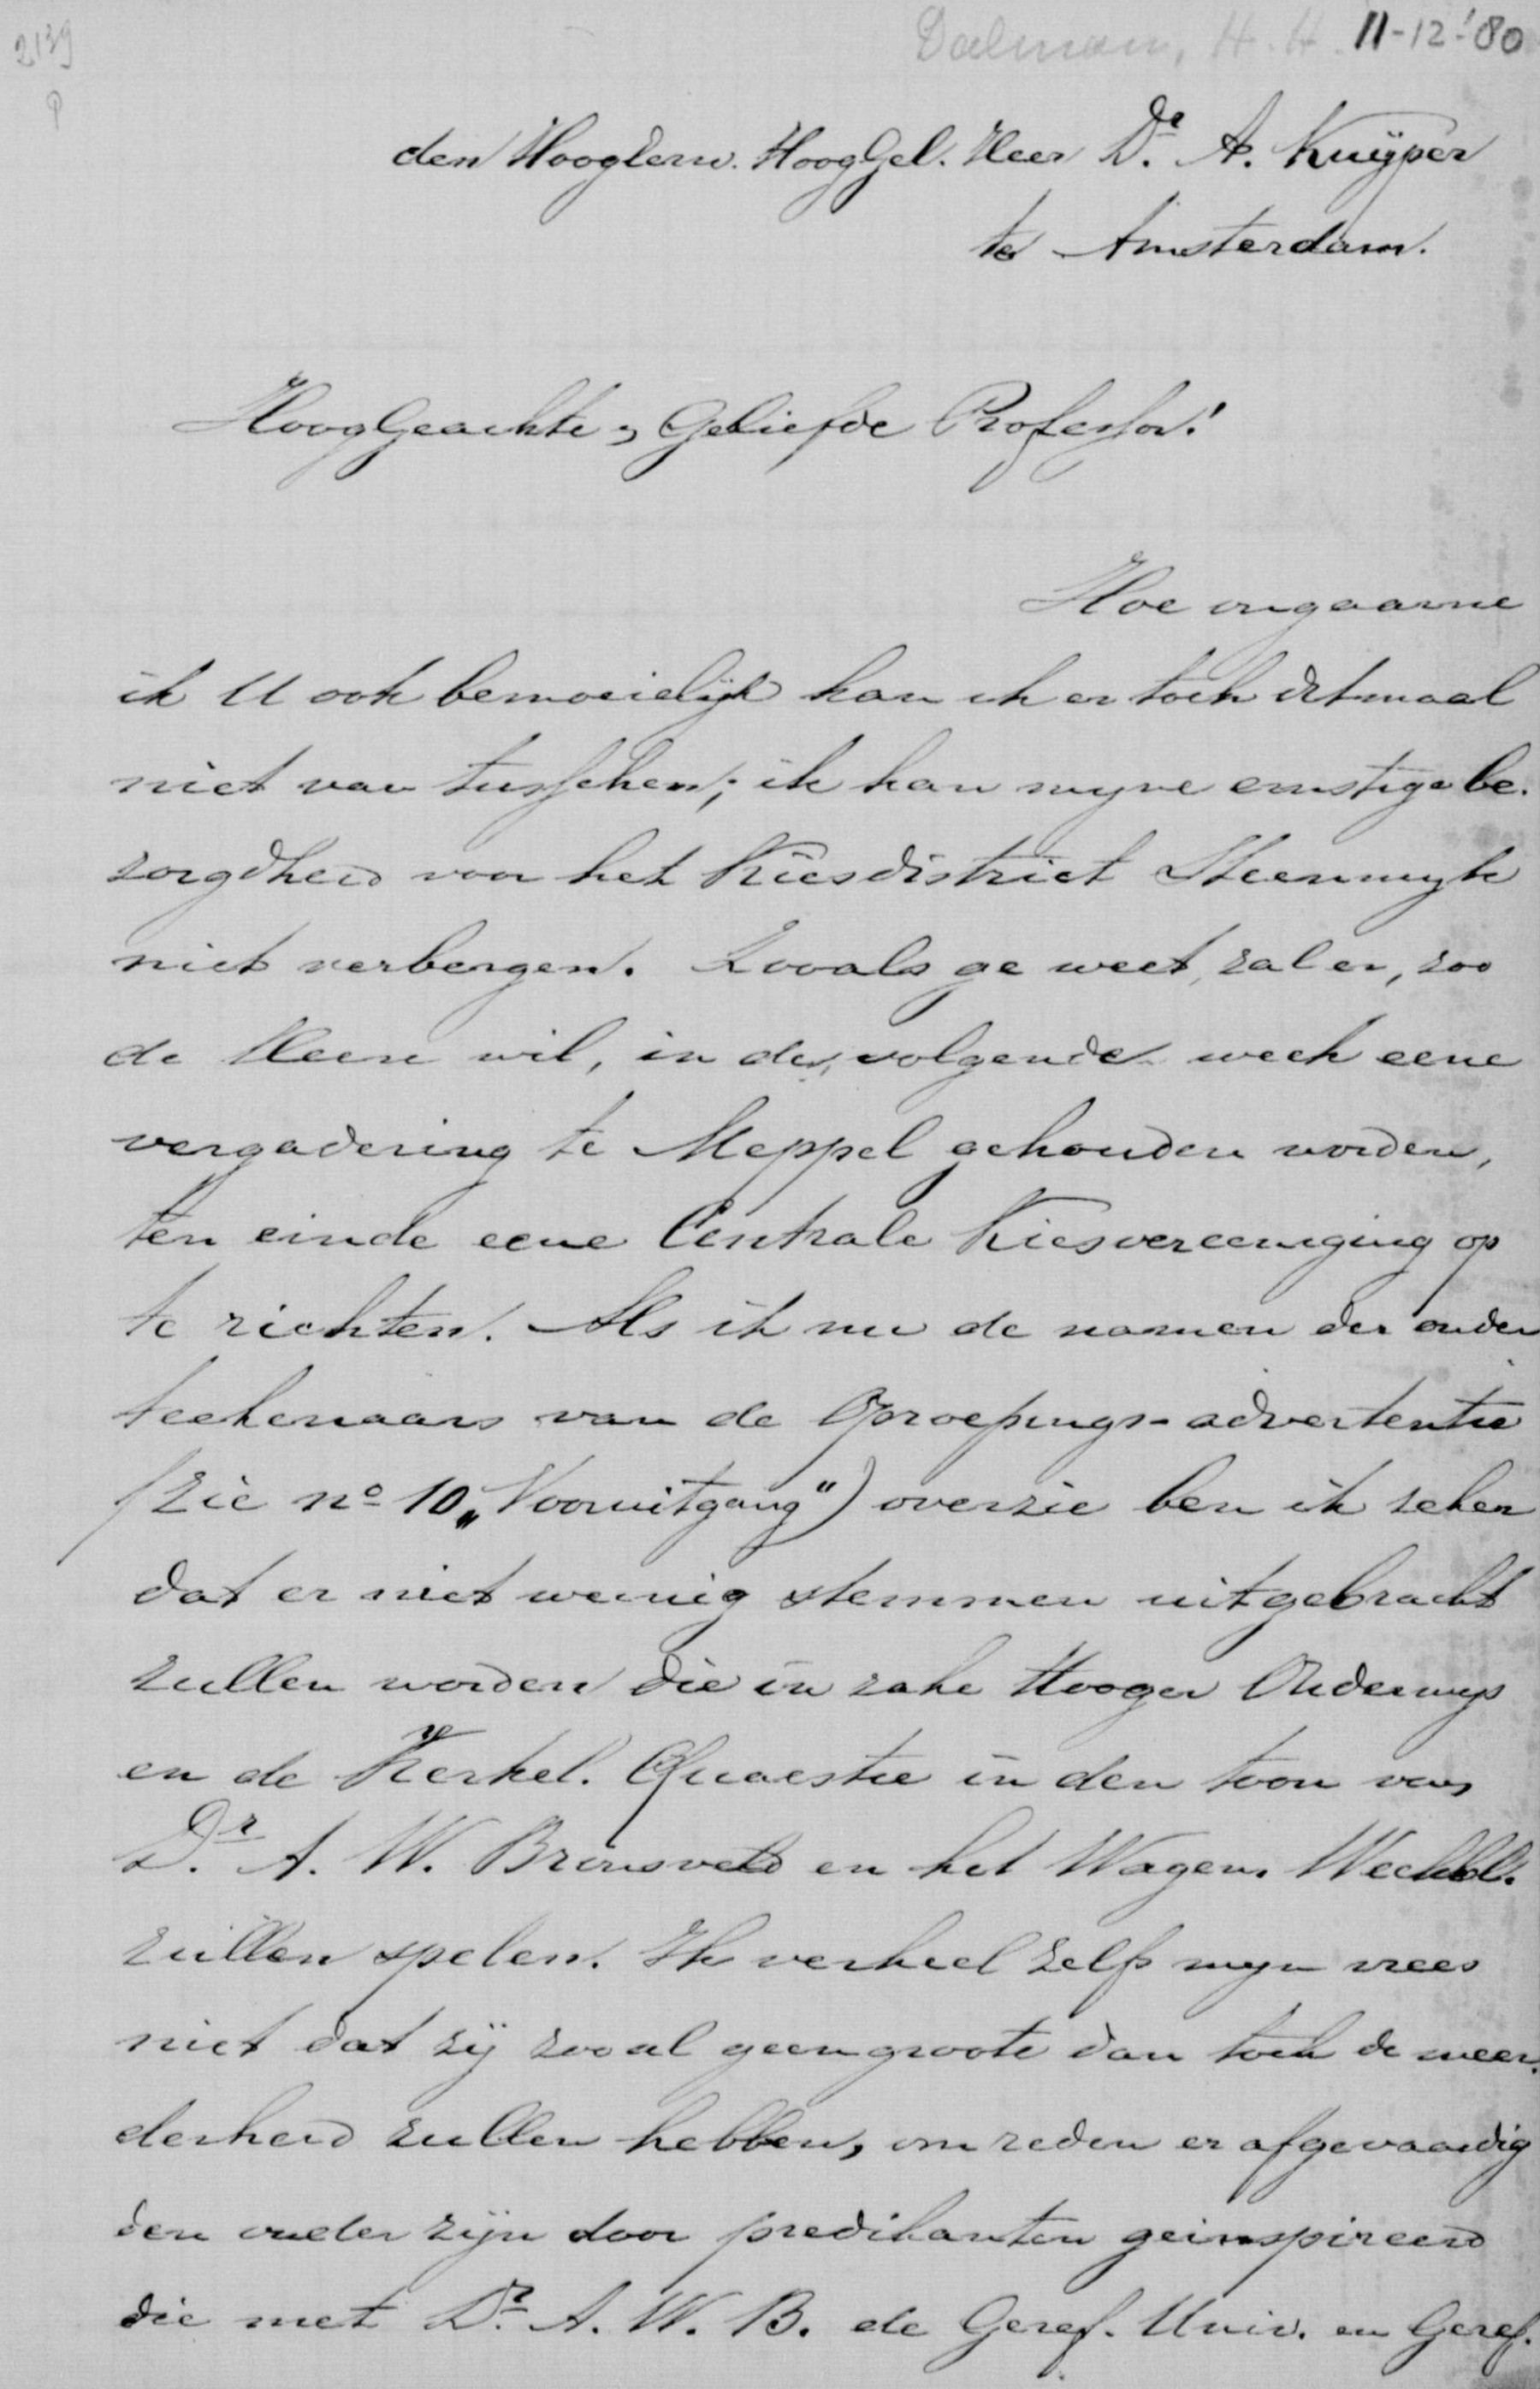 2139
P
Dalman, H. H. 11-12-'80
den Hoogleerw. HoogGel. Heer Dr. A. Kuÿper
te Amsterdam.
HoogGeachte, Geliefde Professor!
Hoe ongaarne
ik U ook bemoeielijk kan ik er toch ditmaal
niet van tusschen; ik kan myne ernstige be-
zorgdheid voor het Kiesdistrict Steenwyk
niet verbergen. Zooals ge weet, zal er, zoo
de Heere wil, in de volgende week eene
vergadering te Meppel gehouden worden,
ten einde eene Centrale Kiesvereeniging op
te richten. Als ik nu de namen der onder
teekenaars van de Oproepings-advertentie
(zie no 10 „Vooruitgang") overzie ben ik zeker
dat er niet weinig stemmen uitgebracht
zullen worden die in zake Hooger Onderwys
en de Kerkel. Quaestie in den toon van
Dr. A. W. Bronsveld en het Wagen. Weekbl.
zullen spelen. Ik verheel zelfs myn vrees
niet dat zij zoo al geen groote dan toch de meer-
derheid zullen hebben, om reden er afgevaardig
den onder zijn door predikanten geinspireerd
die met Dr. A. W. B. de Geref. Univ. en Geref.